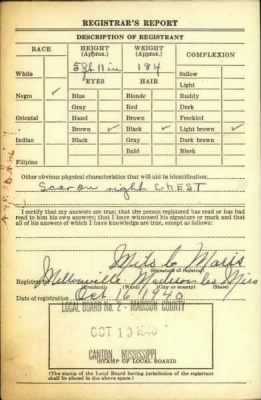 REGISTRAR'S REPORT
DESCRIPTION OF REGISTRANT
RACE HEIGHT (Approx.) WEIGHT (Approx.) COMPLEXION
5 ft 11 in 184
White EYES HAIR Sallow
Light
Negro ✓ Blue Blonde Ruddy
Gray Red Dark
Oriental Hazel Brown Freckled
Brown ✓ Black ✓ Light brown ✓
Indian Black Gray Dark brown
Bald Black
Filipino
Other obvious physical characteristics that will aid in identification
Scar on right CHEST
I certify that my answers are true; that the person registered has read or has had
read to him his own answers; that I have witnessed his signature or mark and that
all of his answers of which I have knowledge are true, except as follows:
(Signature of registrar)
Registrar for Madison Co Miss
(Precinct) (Ward) (City or county) (State)
Date of registration Oct 16 1940
LOCAL BOARD No. 2 - MADISON COUNTY
OCT 1 1940
CANTON, MISSISSIPPI
(STAMP OF LOCAL BOARD)
(The stamp of the Local Board having jurisdiction of the registrant
shall be placed in the above space.)